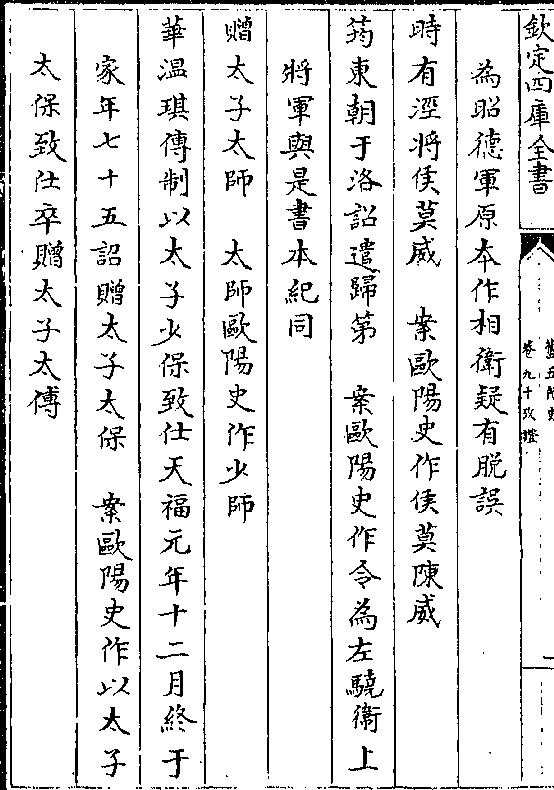 欽定四庫全書
舊五代史
卷九十攷證
一
為昭德軍原本作相衛疑有脫誤
時有涇將侯莫威　案歐陽史作侯莫陳威
筠東朝于洛詔遣歸第　案歐陽史作令為左驍衛上
將軍與是書本紀同
贈太子太師　太師歐陽史作少師
華温琪傳制以太子少保致仕天福元年十二月終于
家年七十五詔贈太子太保　案歐陽史作以太子
太保致仕卒贈太子太傅